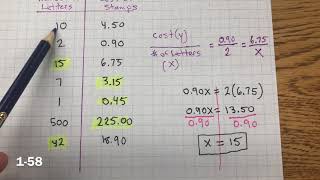 Letters Stamps
10 4.50
2 0.90
15 6.75
7 3.15
1 0.45
500 225.00
42 18.90
cost(y) / # of Letters (x) = 0.90 / 2 = 6.75 / x
0.90x = 2(6.75)
0.90x = 13.50
0.90 0.90
x = 15
1-58